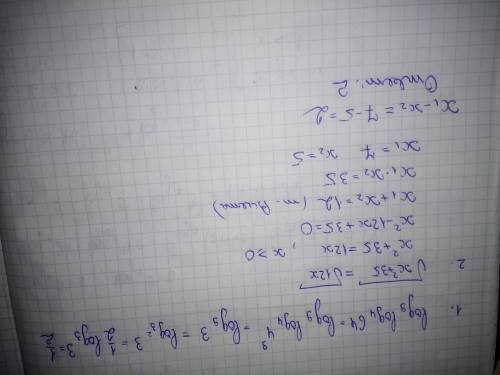 1. log₉ log₄ 64 = log₉ log₄ 4³ = log₉ 3 = log₃² 3 = 1/2 log₃ 3 = 1/2
2. √x²+35 = √12x
x²+35 = 12x , x ≥ 0
x²-12x+35=0
x₁+x₂=12 (т. Виета)
x₁·x₂=35
x₁=7 x₂=5
x₁-x₂=7-5=2
Ответ: 2